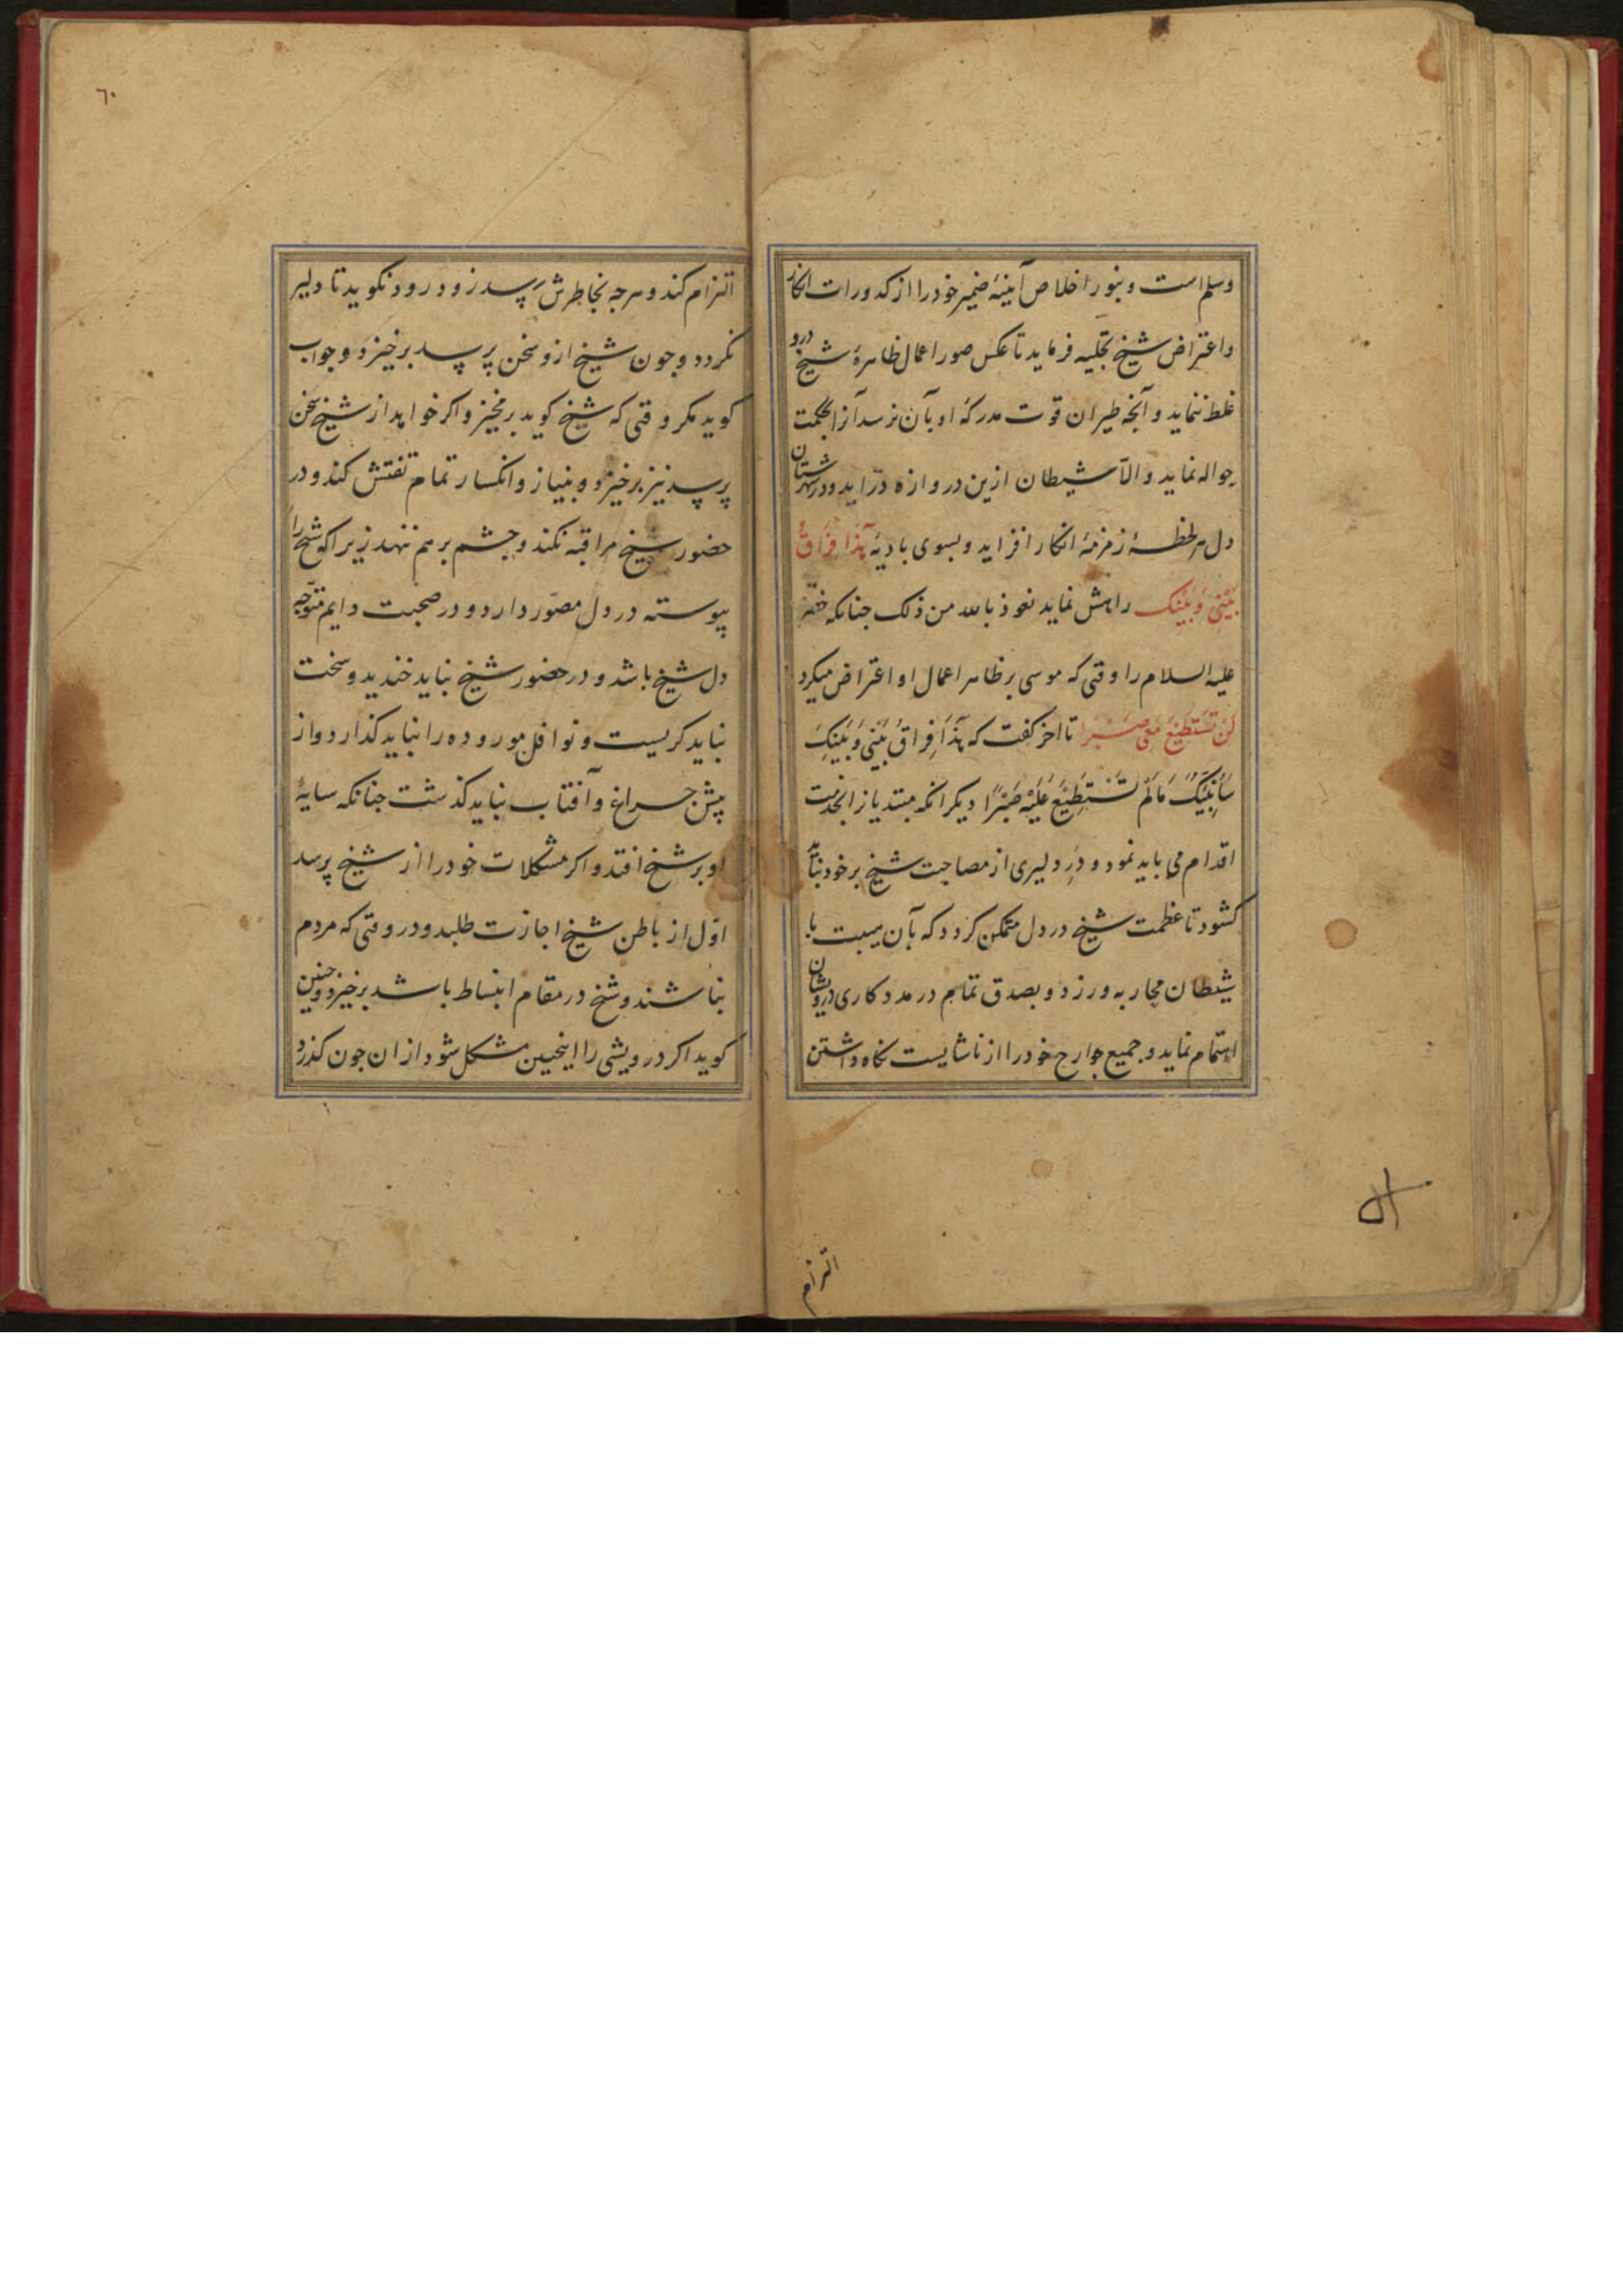 وسلم است و بنور اخلاص آیینهٔ ضمیر خود را از کدورات انکار
و اعتراض شیخ تجلیه فرماید تا عکس صور اعمال ظاهرهٔ شیخ درو
غلط ننماید و آنچه طیران قوت مدرکهٔ او بآن نرسد آنرا بحکمت
حواله نماید و الّا شیطان ازین دروازه درآید و در شهرستان
دل هر لحظهٔ زمزمهٔ انکار افزاید و بسوی بادیهٔ هَذا فِرَاقُ
بَیْنِی وَبَیْنِک راهش نماید نعوذ بالله من ذلک جنانکه خضر
علیه السلام را وقتی که موسی بر ظاهر اعمال او اعتراض میکرد
لَنْ تَسْتَطِیْعَ مَعِیَ صَبْرًا تا اخر کفت که هَذَا فِرَاقُ بَیْنِی وَبَیْنِکَ
سَاُنَبِّئُکَ مَا لَمْ تَسْتَطِیْعْ عَلَیْهِ صَبْرًا دیکر انکه مبتدی از انخدمت
اقدام می باید نمود و دَرِ دلیری از مصاحبت شیخ بر خود نباید
کشود تا عظمت شیخ در دل متمکن کردد که بآن هیبت با
شیطان محاربه ورزد و بصدق تمام در مددکاری درویشان
اهتمام نماید و جمیع جوارح خود را از ناشایست نکاه داشتن
التزام
٦٠
التزام کند و هرجه بخاطرش رسد زود زود نکوید تا دلیر
نکردد و جون شیخ ازو سخن پرسد برخیزد و جواب
کوید مکر وقتی که شیخ کوید برمخیز و اکر خواهد از شیخ سخن
پرسد نیز برخیزد و بنیاز و انکسار تمام تفتش کند و در
حضور شیخ مراقبه نکند و جشم بر هم ننهد زیرا که شیخ را
پیوسته در دل مصوّر دارد و در صحبت دایم متوجّه
دل شیخ باشد و در حضور شیخ نباید خندید و سخت
نباید کریست و نوافل موروده را نباید کذارد و از
پیش جراغ و آفتاب نباید کذشت جنانکه سایهٔ
او بر شیخ افتد و اکر مشکلات خود را از شیخ پرسد
اوّل از باطن شیخ اجازت طلبد و در وقتی که مردم
نباشند و شیخ در مقام انبساط باشد برخیزد و جنین
کوید اکر درویشی را اینجنین مشکل شود از ان جون کذرد